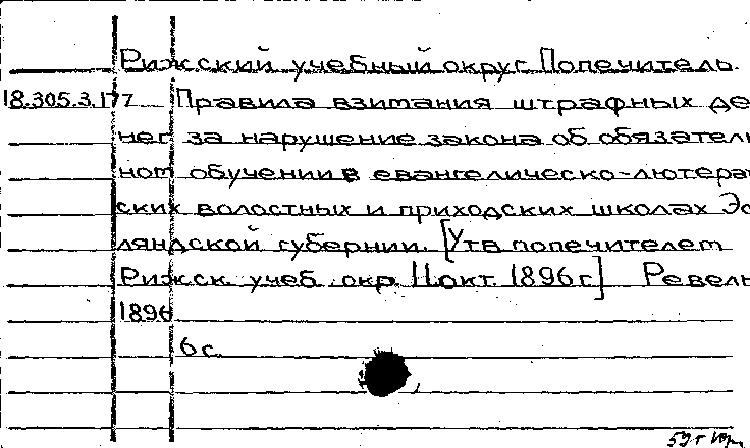 Рижский учебный округ. Попечитель.
18.305.3.177 Правила взимания штрафных де
нег за нарушение закона об обязатель
ном обучении в евангелическо-лютеран
ских волостных и приходских школах Эс
ляндской губернии. [Утв попечителем
Рижск. учеб. окр. 11 окт. 1896 г.] Ревель
1896
6 с.